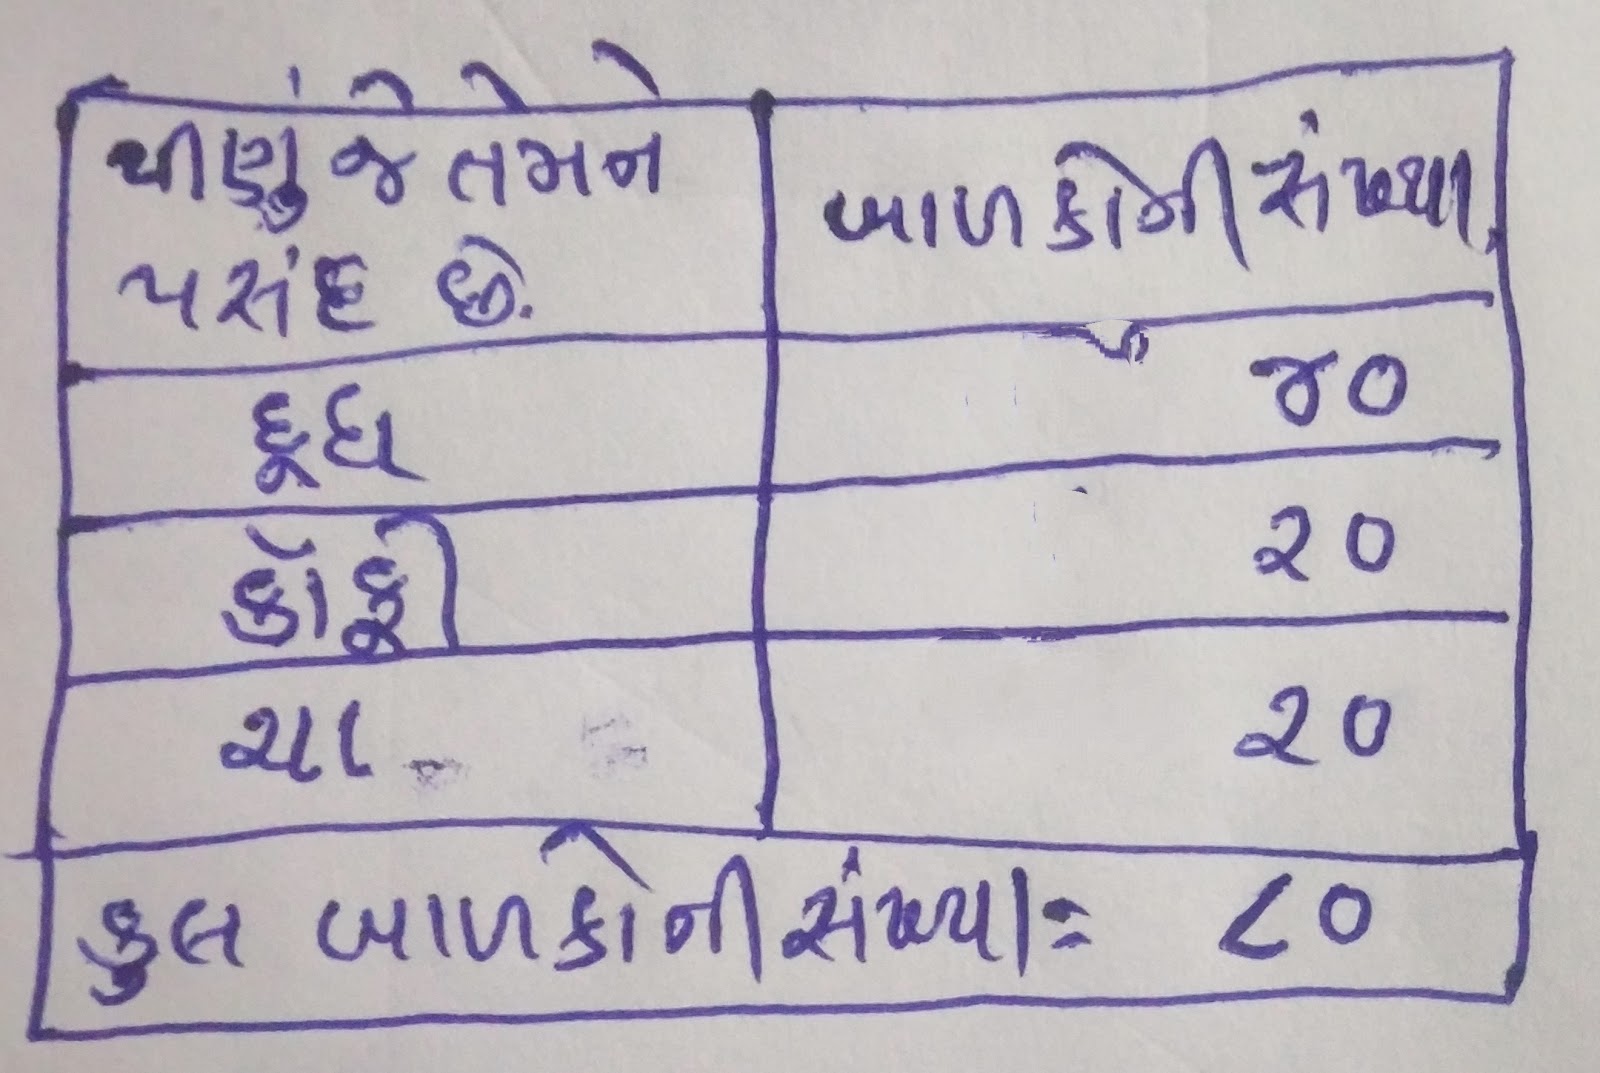 પીણું જે તેમને
પસંદ છે.
બાળકોની સંખ્યા
દૂધ
૪૦
કૉફી
૨૦
ચા
૨૦
કુલ બાળકોની સંખ્યા = ૮૦